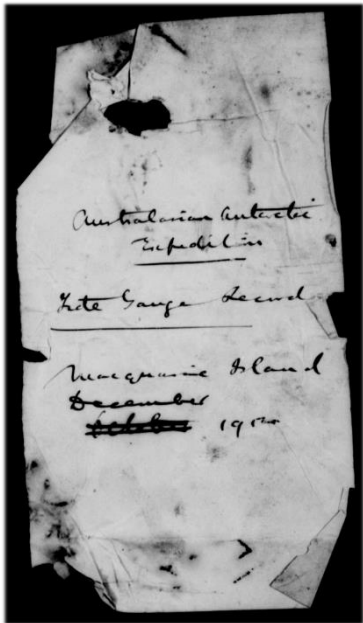 Australasian Antarctic
Expedition
Tide Gauge Record
Macquarie Island
December
October 1912